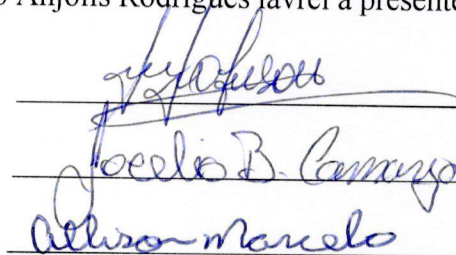 Anjolis Rodrigues lavrei a presente
Jocelio B. Camargo
Allison Marcelo